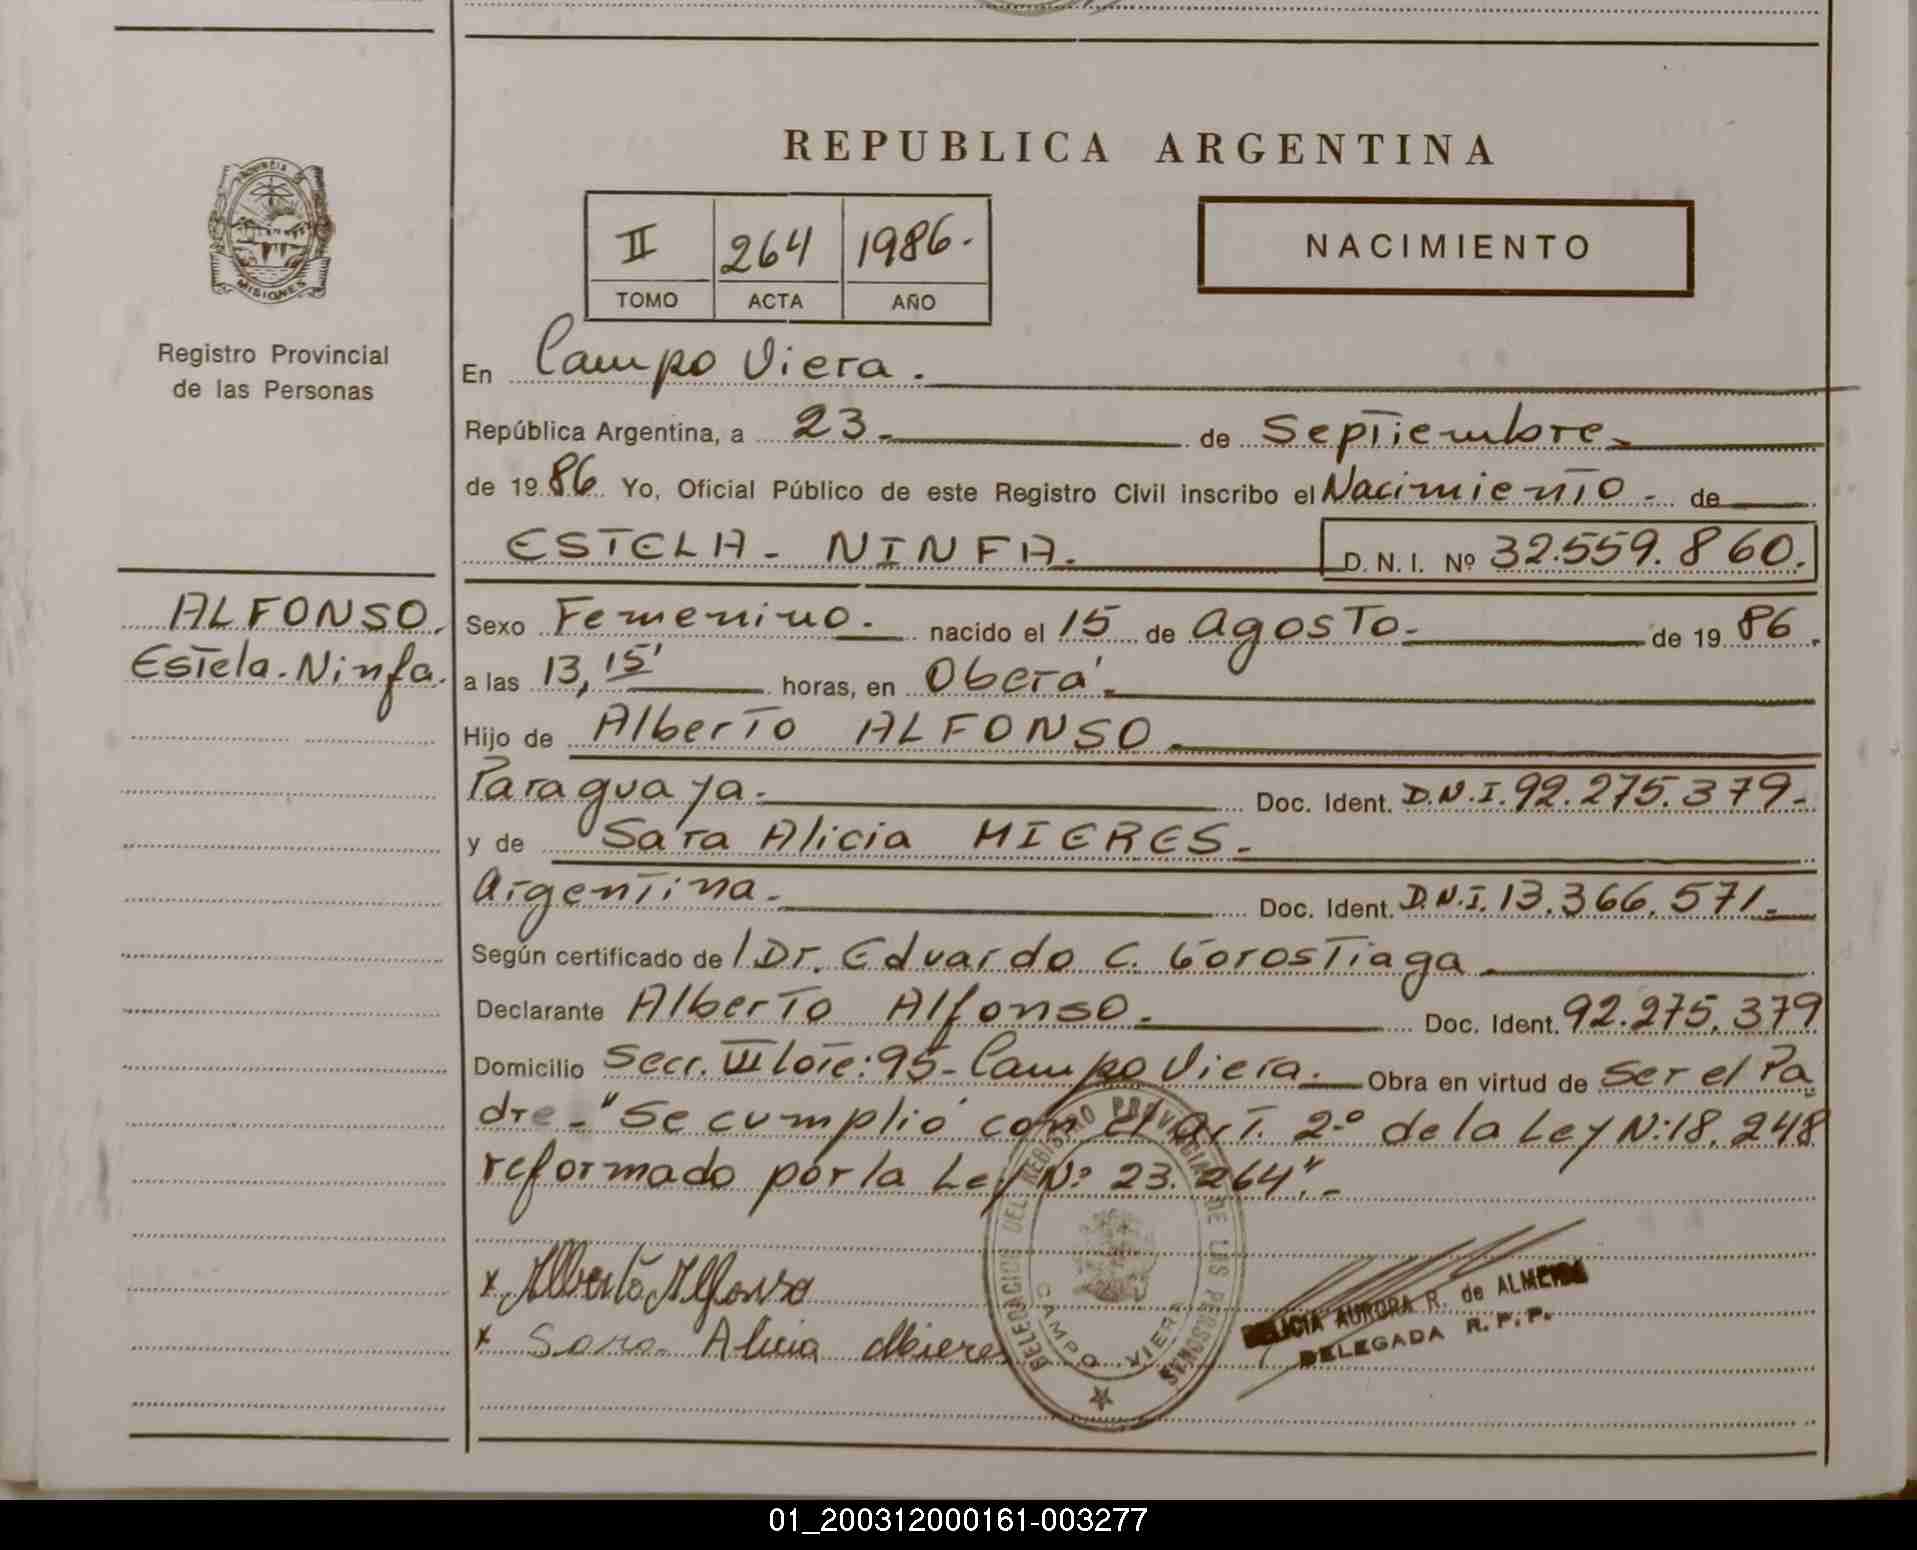 REPUBLICA ARGENTINA
PROVINCIA DE
MISIONES
Registro Provincial
de las Personas
II 264 1986.
TOMO ACTA AÑO
NACIMIENTO
En Campo Viera.
República Argentina, a 23 de Septiembre
de 1986 Yo, Oficial Público de este Registro Civil inscribo el Nacimiento de
ESTELA - NINFA. D. N. I. Nº 32.559.860.
ALFONSO.
Estela-Ninfa.
Sexo Femenino. nacido el 15 de Agosto de 19 86
a las 13,15' horas, en Oberá
Hijo de Alberto ALFONSO
Paraguaya. Doc. Ident. D.N.I. 92.275.379-
y de Sara Alicia MIERES.
Argentina. Doc. Ident. D.N.I. 13.366.571.
Según certificado de / Dr. Eduardo C. Gorostiaga
Declarante Alberto Alfonso. Doc. Ident. 92.275.379
Domicilio Secc. III lote: 95- Campo Viera. Obra en virtud de ser el Pa
dre - "Se cumplió con el Art. 2º de la Ley Nº 18.248
reformado por la Ley Nº 23.264".-
x Alberto Alfonso
x Sara Alicia Mieres
DELEGACION DEL REGISTRO PROVINCIAL DE LAS PERSONAS
CAMPO VIERA
DELICIA AURORA R. de ALMEIDA
DELEGADA R. P. P.
01_200312000161-003277